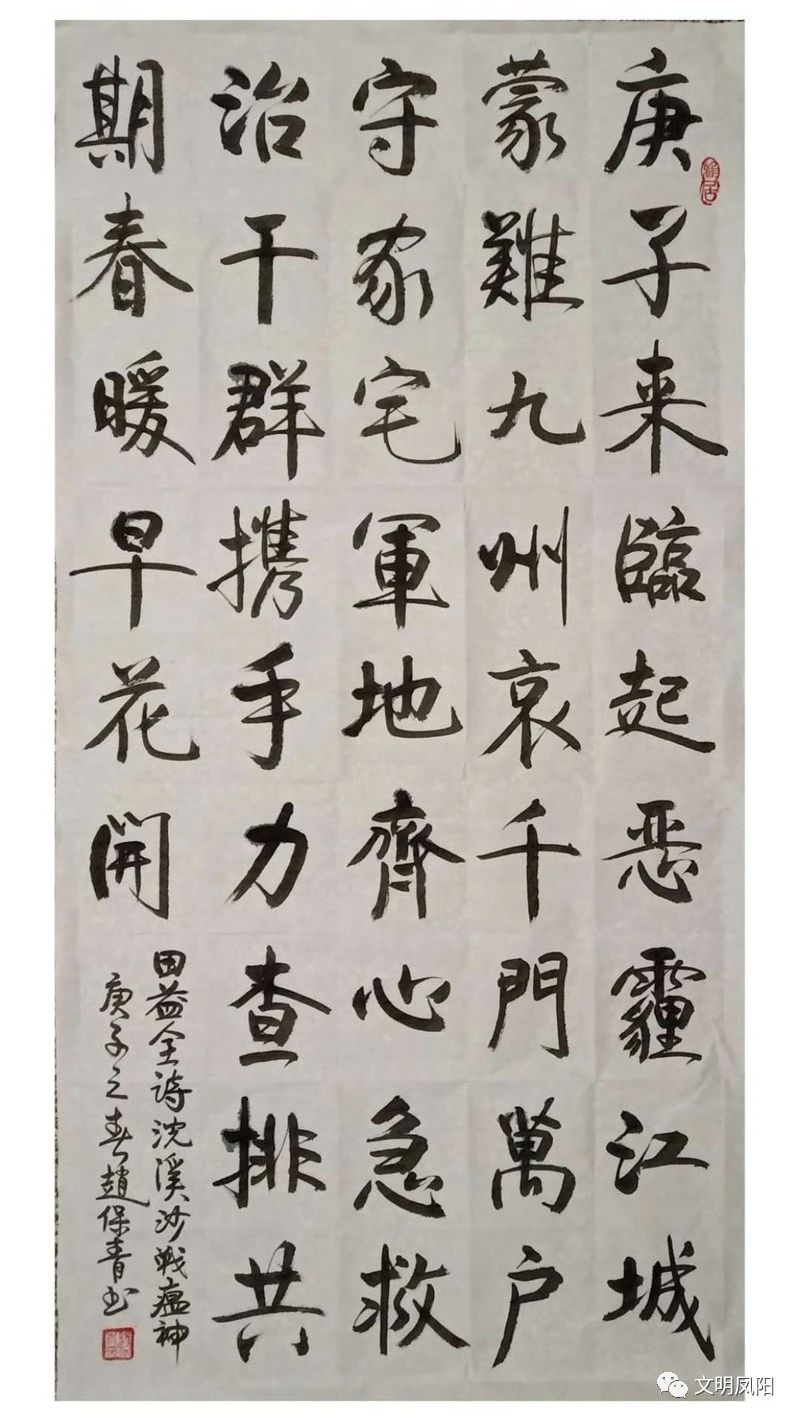 庚子来臨起恶霾江城
蒙難九州哀千門萬户
守家宅軍地齊心急救
治干群携手力查排共
期春暖早花開
田益全詩浣溪沙战瘟神
庚子之春趙保青书
文明凤阳